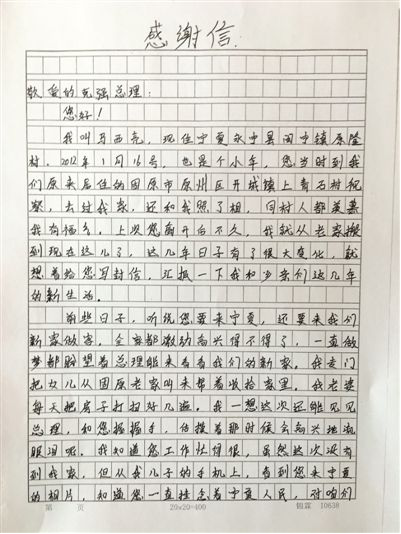 感谢信
敬爱的克强总理:
您好!
我叫马西亮,现住宁夏永宁县闽宁镇原隆
村。2012年1月16号,也是个小年,您当时到我
们原来居住的固原市原州区开城镇上青石村视
察,去过我家,还和我照了相,同村人都羡慕
我有福分。上次您离开后不久,我就从老家搬
到现在这儿了,这几年日子有了很大变化,就
想着给您写封信,汇报一下我和乡亲们这几年
的新生活。
前些日子,听说您要来宁夏,还要来我们
新家做客,全家都激动高兴得不得了,一直做
梦都盼望着总理能来看看我们的新家。我专门
把女儿从固原老家叫来帮着收拾家里。我老婆
每天把房子打扫好几遍。我一想这次还能见见
总理,和您握握手,估摸着那时候会高兴地流
眼泪呢。我知道您工作忙得很,虽然这次没有
到我家,但从我儿子的手机上,看到您来宁夏
的相片,知道您一直挂念着宁夏人民,对咱们
第 页 20×20=400 10638